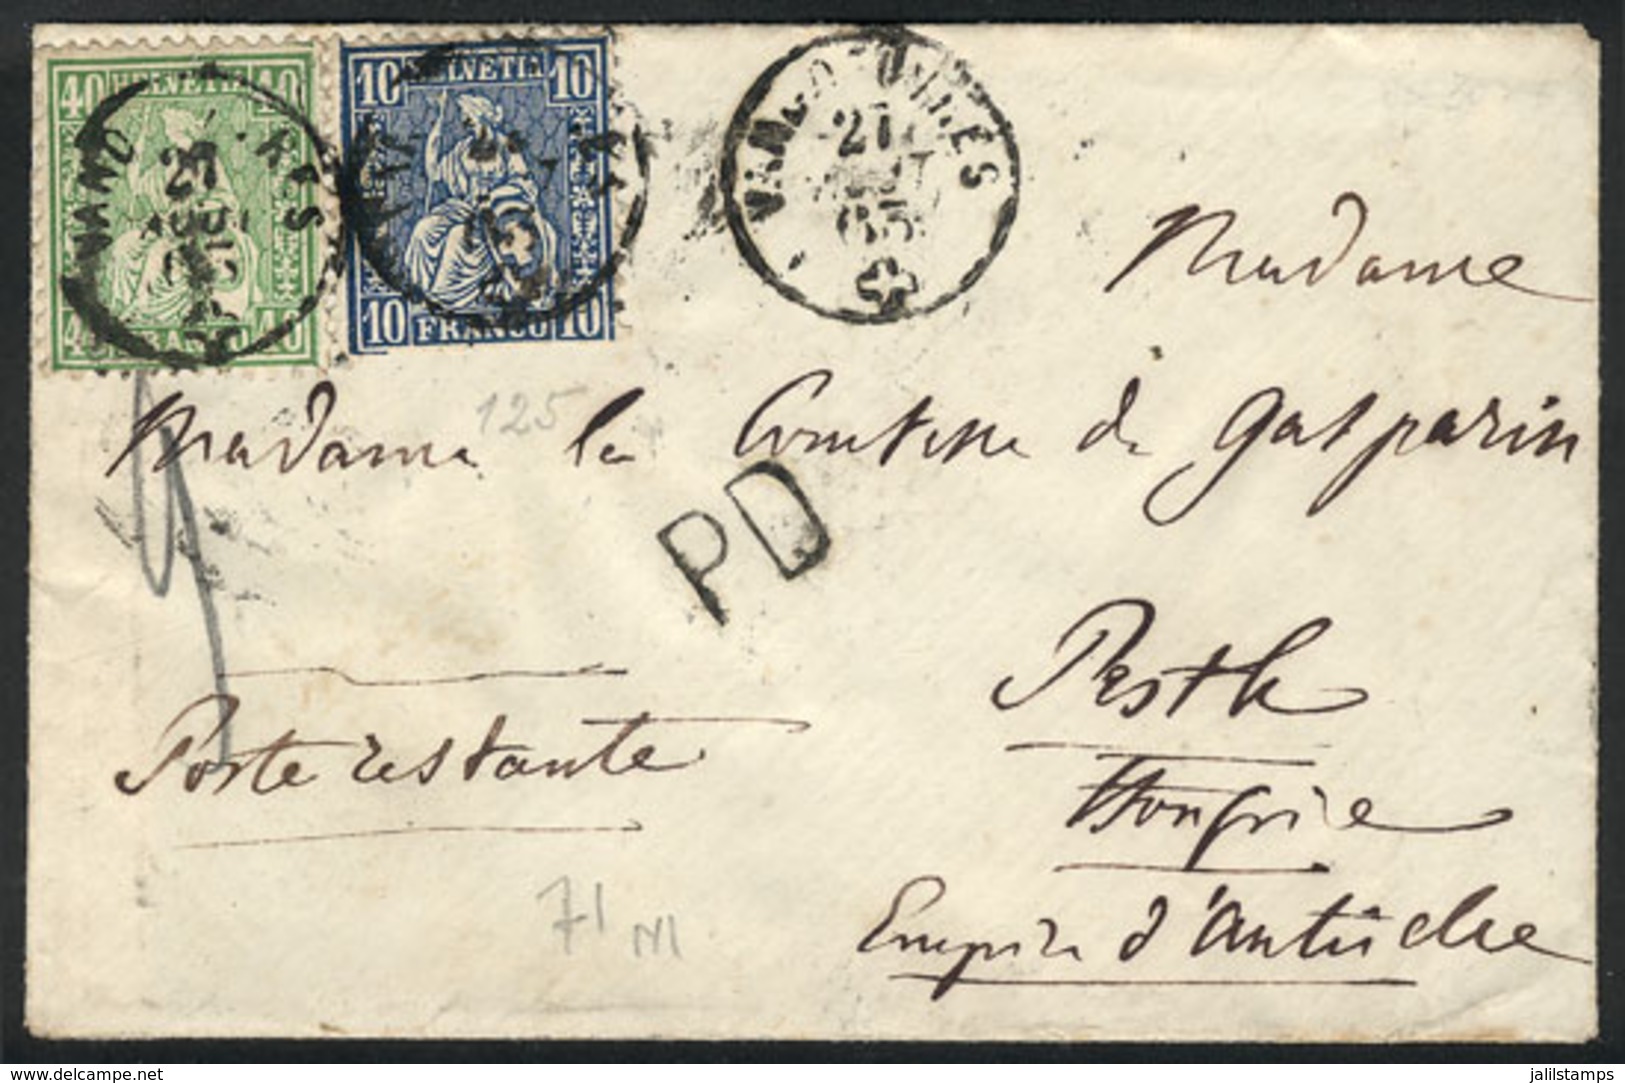 40 HELVETIA 40
10 HELVETIA 10
27
AOUT
65
VANDOEUVRES
27
AOUT
65
40 FRANCO 40
10 FRANCO 10
Madame
125
Madame la Comtesse de Gasparin
PD
Pesth
Poste restante
Hongrie
71
Empire d'Autriche
www.delcampe.net
jalilstamps